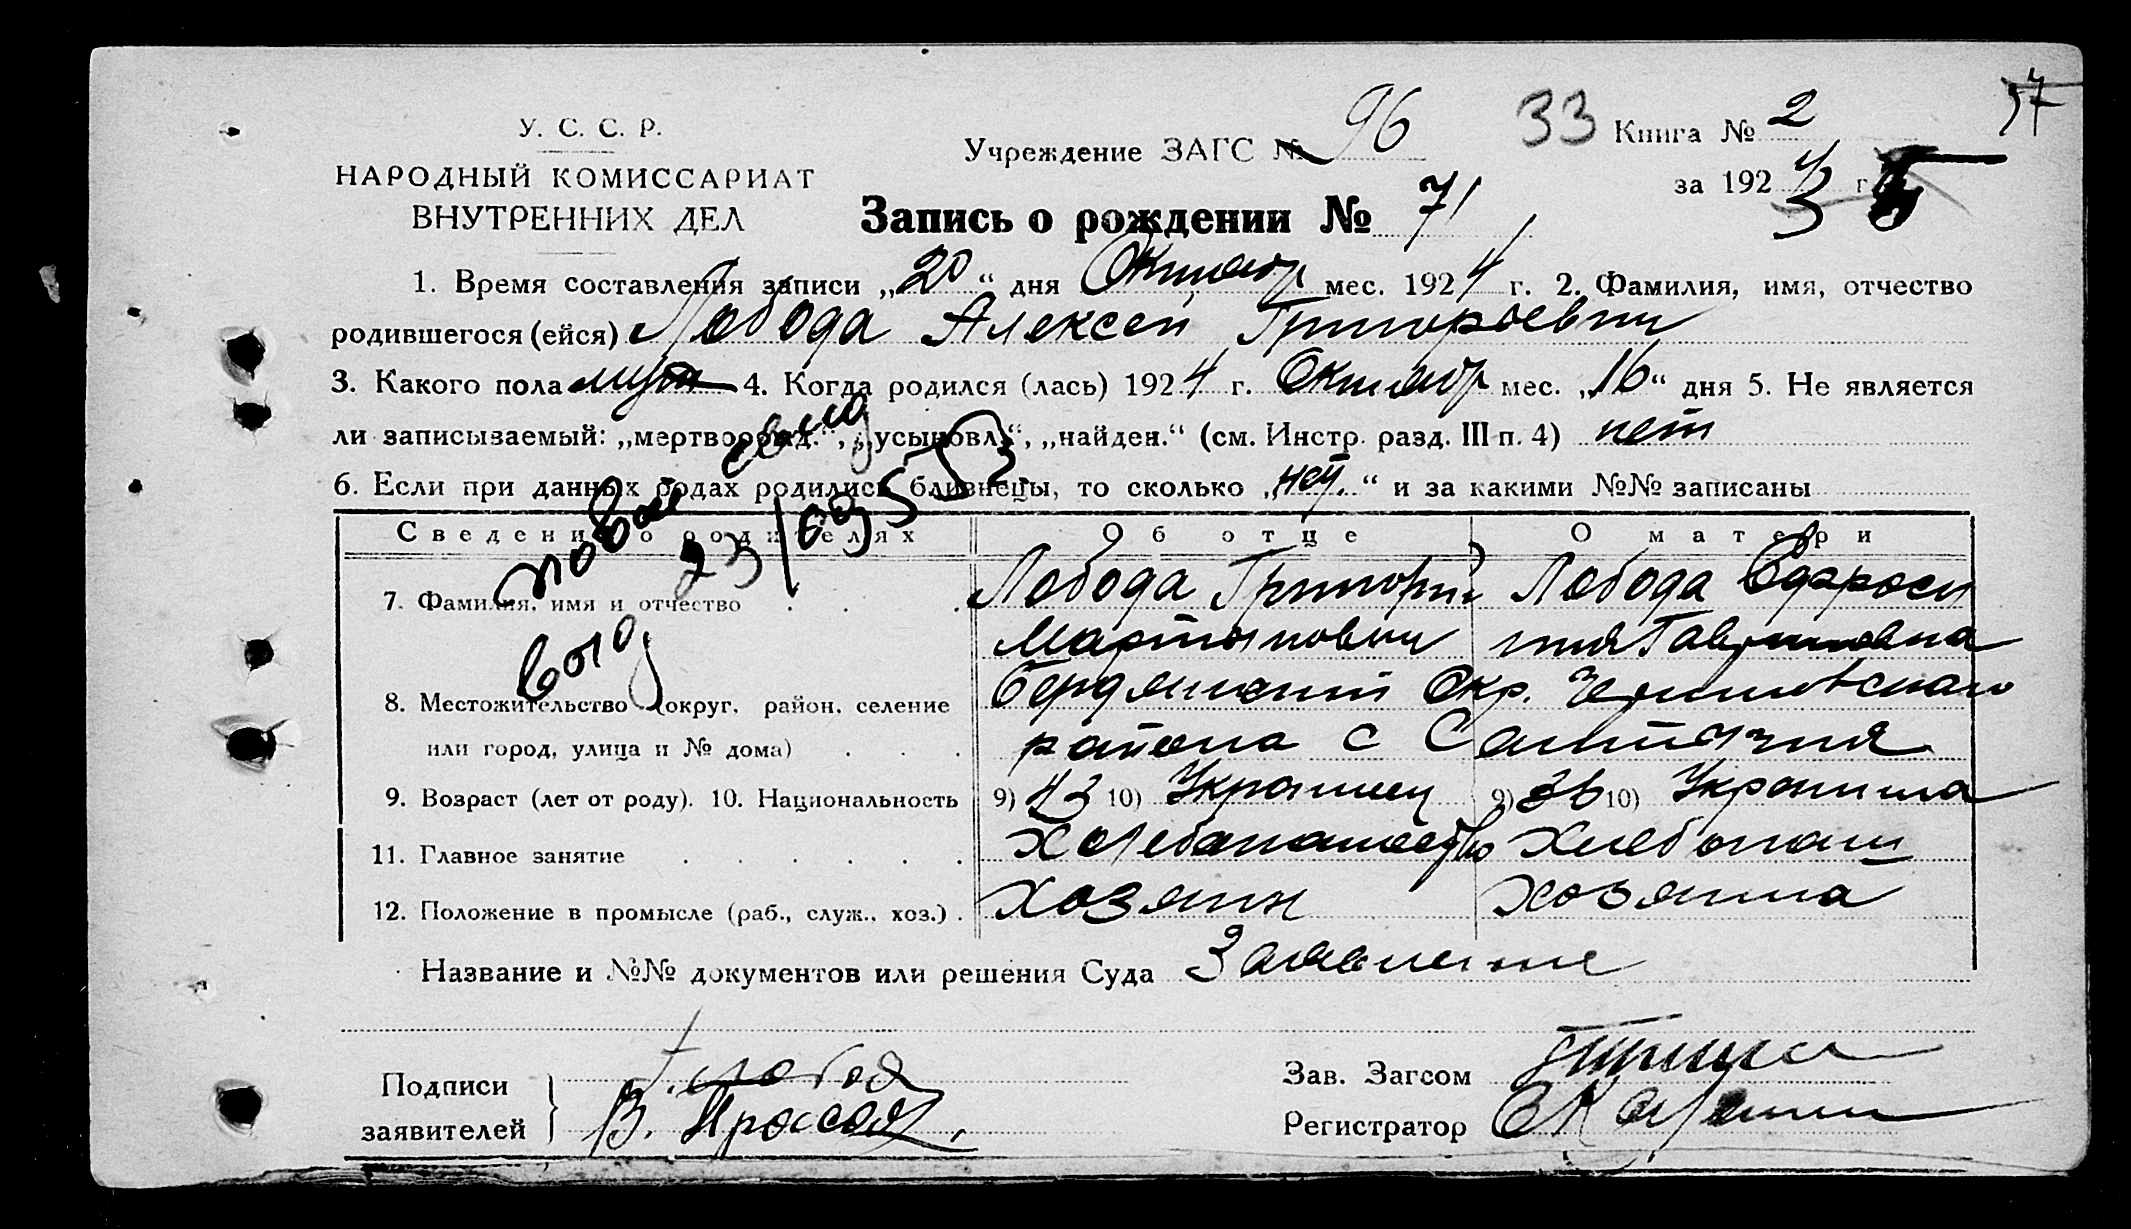 У. С. С. Р.
НАРОДНЫЙ КОМИССАРИАТ
ВНУТРЕННИХ ДЕЛ
Учреждение ЗАГС № 96
33 Книга № 2
37
за 192 г.
Запись о рождении № 71
1. Время составления записи „20“ дня Октябр мес. 1924 г. 2. Фамилия, имя, отчество
родившегося (ейся) Лобода Алексей Григорьевич
3. Какого пола муж 4. Когда родился (лась) 1924 г. Октябр мес. „16“ дня 5. Не является
ли записываемый: „мертворожд.“, „усыновл.“, „найден.“ (см. Инстр. разд. III п. 4) нет
6. Если при данных родах родились близнецы, то сколько „нет“ и за какими №№ записаны
Сведения о родителях Об отце О матери
7. Фамилия, имя и отчество Лобода Григорий Лобода Евдроси
Мартынович ния Гавриловна
8. Местожительство (округ, район, селение Бердянский Окр. Черниговскаго
или город, улица и № дома) района с
9. Возраст (лет от роду). 10. Национальность 9) 43 10) Украинец 9) 36 10) Украинка
11. Главное занятие Хлебопашество Хлебопаш
12. Положение в промысле (раб., служ., хоз.) Хозяин Хозяйка
Название и №№ документов или решения Суда Заявление
Подписи
заявителей
Зав. Загсом
Регистратор